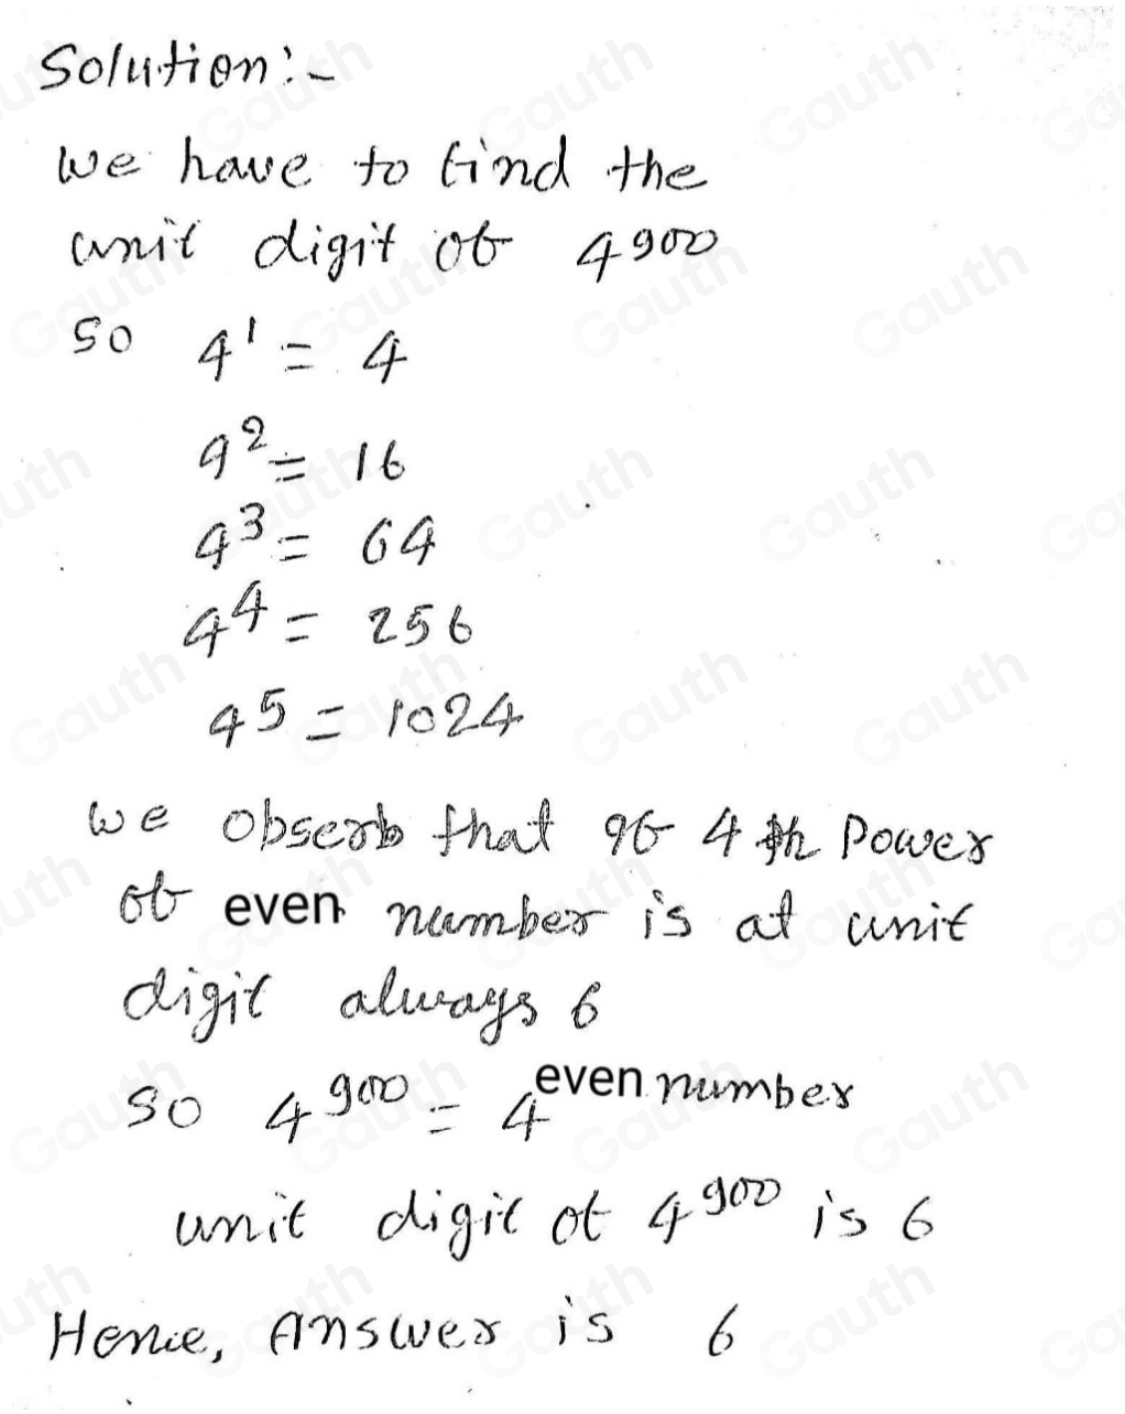 Solution:-
We have to find the
unit digit of 4^900
So 4^1 = 4
4^2 = 16
4^3 = 64
4^4 = 256
4^5 = 1024
We observb that if 4 th Power
of even number is at unit
digit always 6
So 4^900 = 4^even number
unit digit of 4^900 is 6
Hence, Answer is 6
Gauth